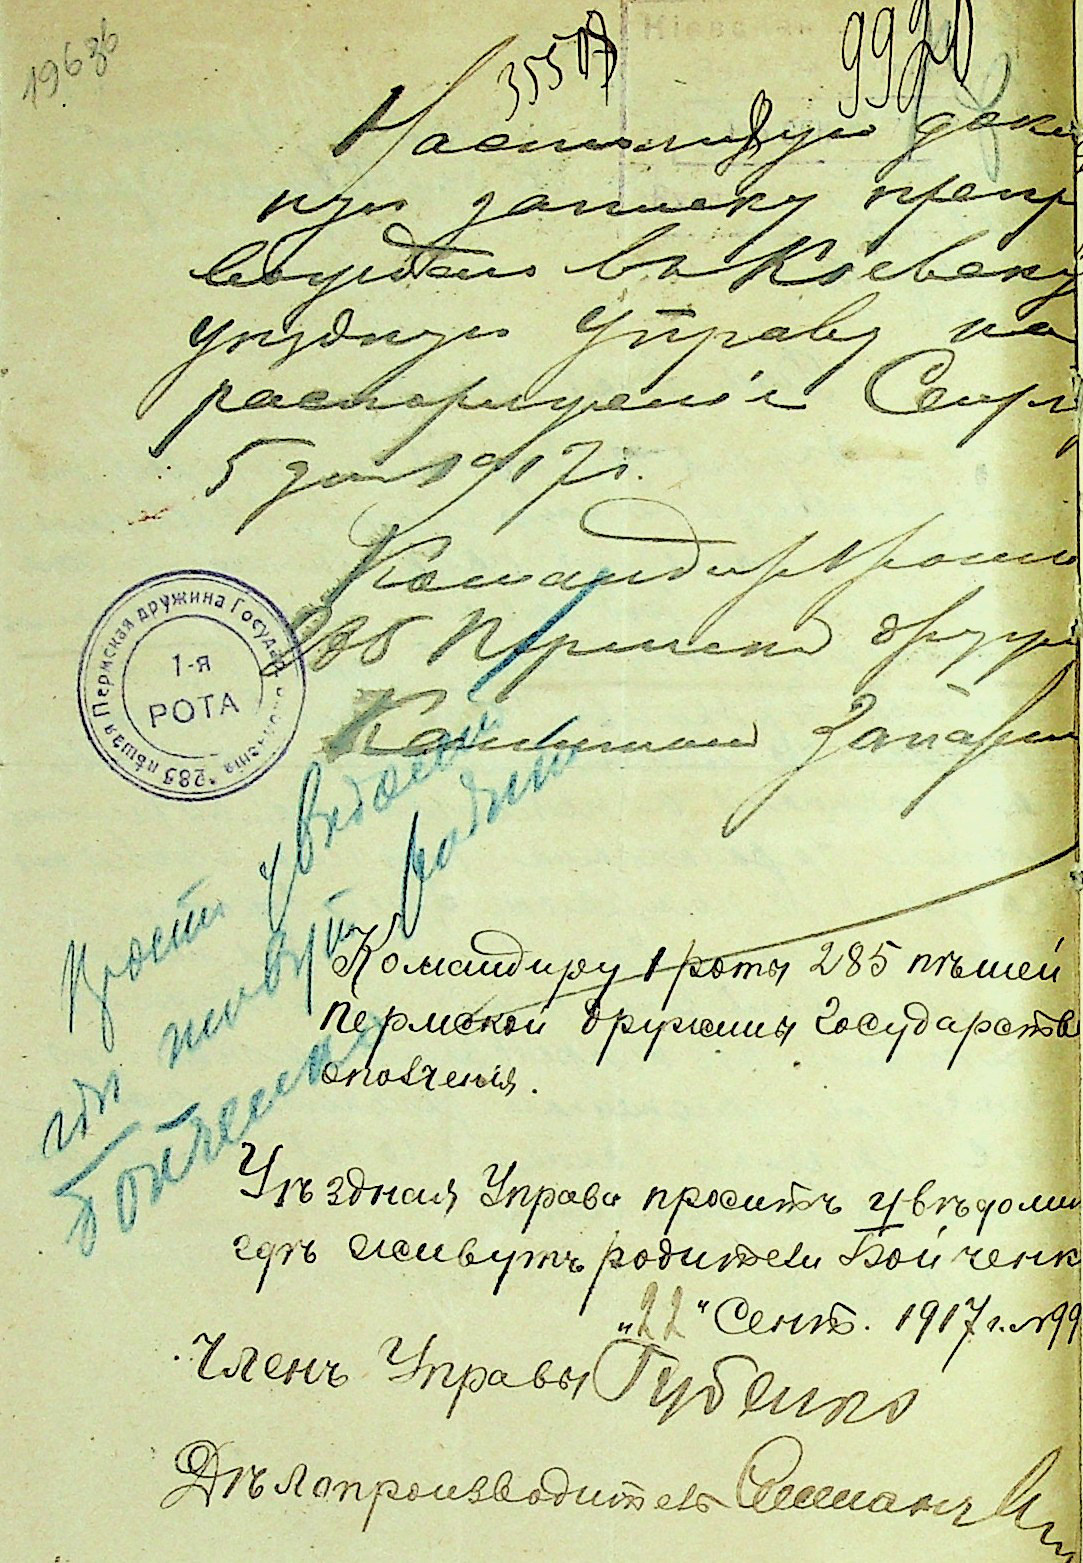 35507
9920
Настоящую докл
ную записку препр
вождаю въ Кіевску
уѣздную Управу на
распоряженіе Сент
5 дня 1917 г.
Командир 1 роты
285 Пермской друж
Капитан
285 пѣшая Пермская дружина Госуда
1-я
РОТА
Прост уведоми
гдѣ живутъ родит
Бойченк
Командиру 1 роты 285 пѣшей
Пермской дружины Государств
ополченія.
Уѣздная Управа проситъ увѣдоми
гдѣ живутъ родители Бойченк
"22" Сент. 1917 г. № 99
Членъ Управы Губенко
Дѣлопроизводитель